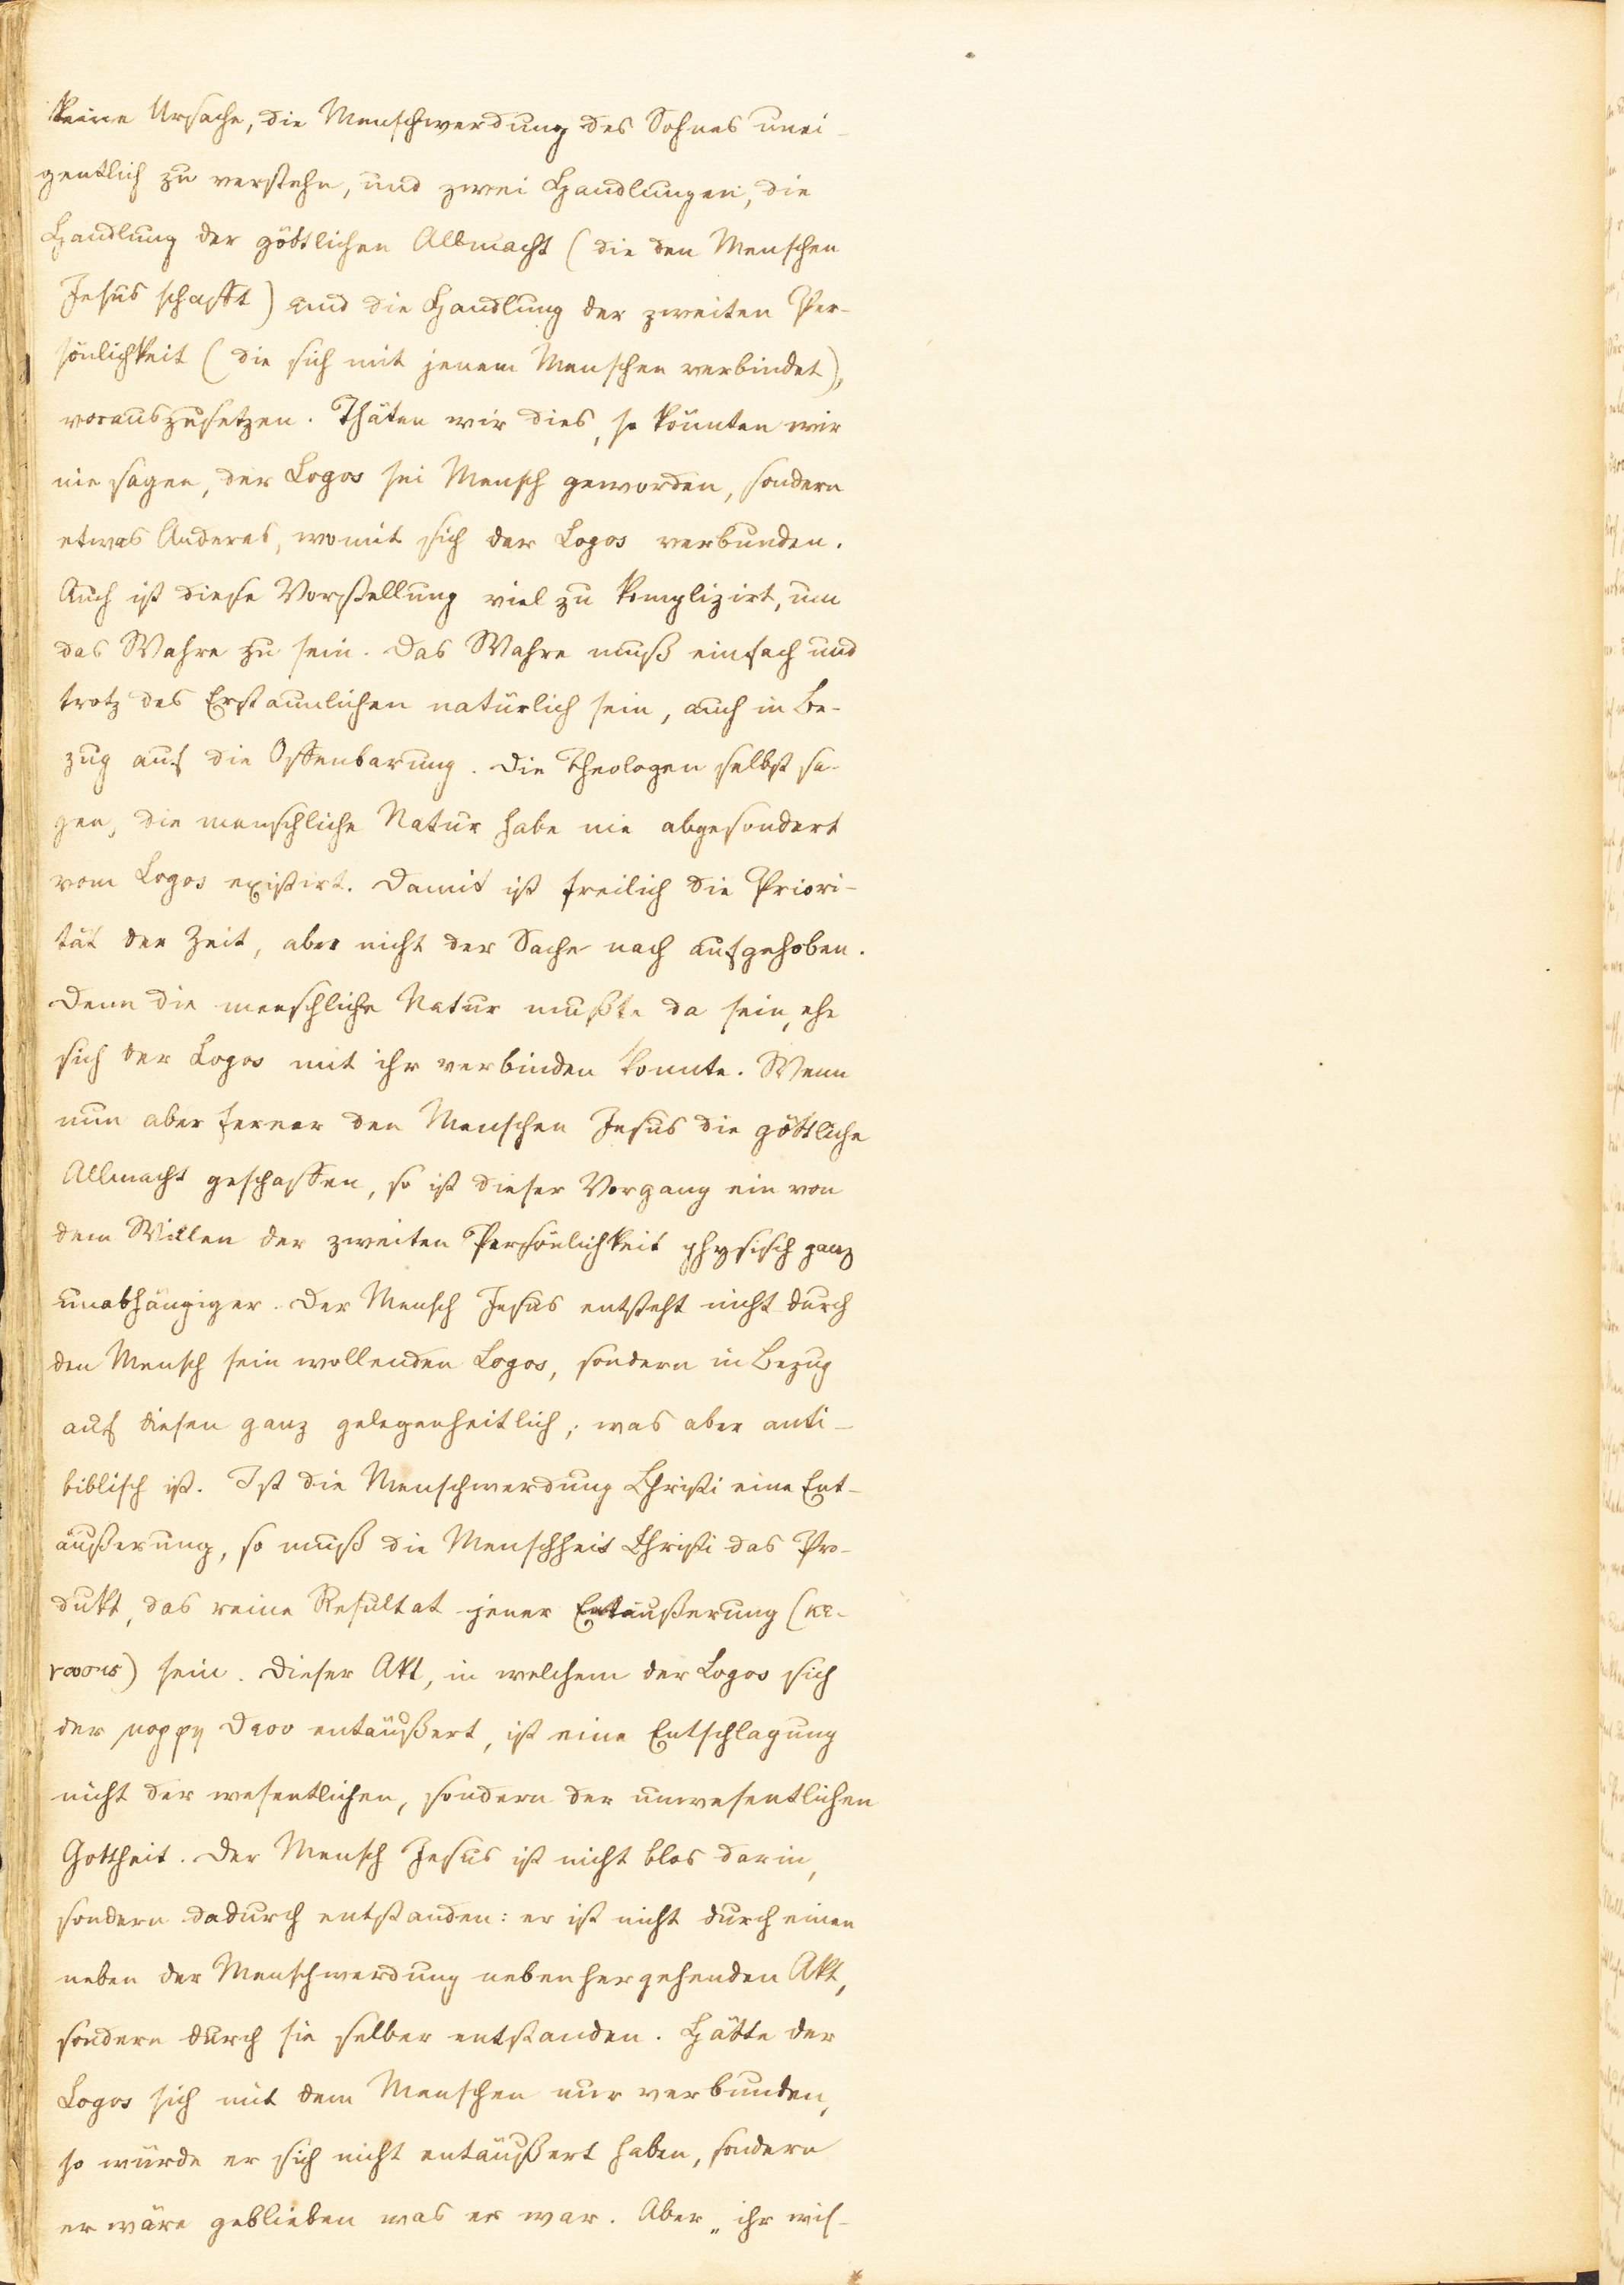 keine Ursache, die Menschwerdung des Sohnes unei-
gentlich zu verstehn, und zwei Handlungen, die
Handlung der göttlichen Allmacht (die den Menschen
Jesus schafft) und die Handlung der zweiten Per-
sönlichkeit (die sich mit jenem Menschen verbindet),
vorauszusetzen. Thäten wir dies, so könnten wir
nie sagen, der Logos sei Mensch geworden, sondern
etwas Anderes, womit sich der Logos verbunden.
Auch ist diese Vorstellung viel zu komplizirt, um
das Wahre zu sein. Das Wahre muß einfach und
trotz des Erstaunlichen natürlich sein, auch in Be-
zug auf die Offenbarung. Die Theologen selbst sa-
gen, die menschliche Natur habe nie abgesondert
vom Logos existirt. Damit ist freilich die Priori-
tät der Zeit, aber nicht der Sache nach aufgehoben.
Denn die menschliche Natur mußte da sein, ehe
sich der Logos mit ihr verbinden konnte. Wenn
nun aber ferner den Menschen Jesus die göttliche
Allmacht geschaffen, so ist dieser Vorgang ein von
dem Willen der zweiten Persönlichkeit physisch ganz
unabhängiger. Der Mensch Jesus entsteht nicht durch
den Mensch sein wollenden Logos, sondern in Bezug
auf diesen ganz gelegenheitlich; was aber anti-
biblisch ist. Ist die Menschwerdung Christi eine Ent-
äußerung, so muß die Menschheit Christi das Pro-
dukt, das reine Resultat jener Entäußerung (κε-
νωσις) sein. Dieser Akt, in welchem der Logos sich
der μορφη θεου entäußert, ist eine Entschlagung
nicht der wesentlichen, sondern der unwesentlichen
Gottheit. Der Mensch Jesus ist nicht blos darin,
sondern dadurch entstanden: er ist nicht durch einen
neben der Menschwerdung nebenhergehenden Akt,
sondern durch sie selber entstanden. Hätte der
Logos sich mit dem Menschen nur verbunden,
so würde er sich nicht entäußert haben, sondern
er wäre geblieben was er war. Aber „ihr wis-